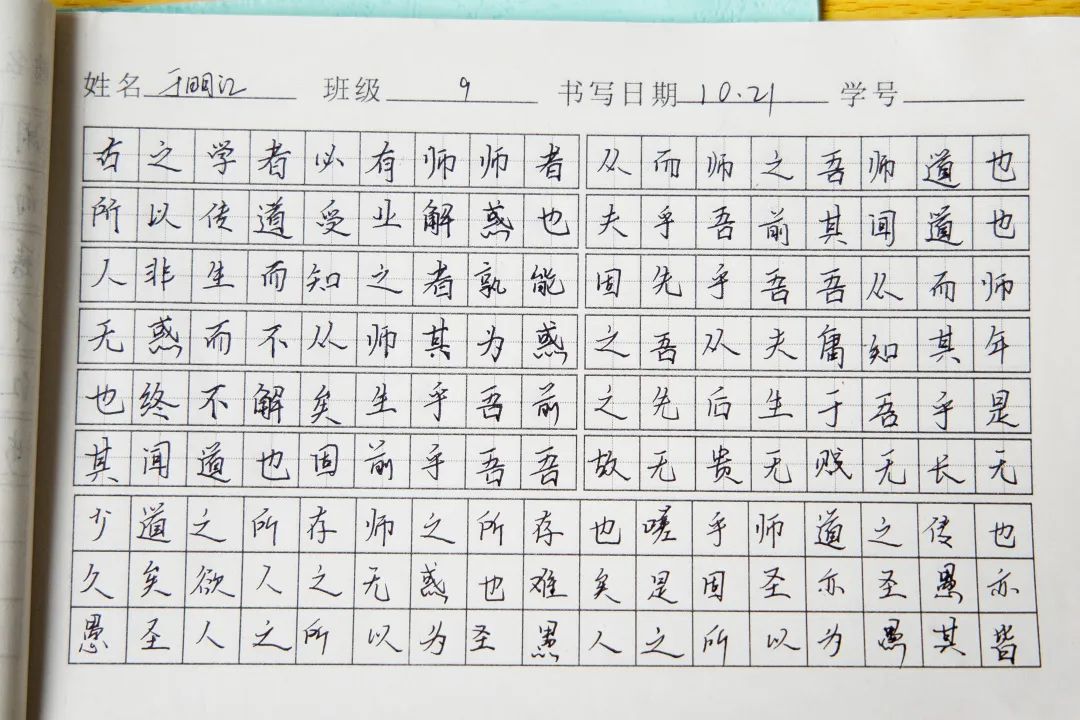 姓名 班级 9 书写日期 10.21 学号
古之学者必有师师者
所以传道受业解惑也
人非生而知之者孰能
无惑而不从师其为惑
也终不解矣生乎吾前
其闻道也固前乎吾吾
从而师之吾师道也
夫乎吾前其闻道也
固先乎吾吾从而师
之吾从夫庸知其年
之先后生于吾乎是
故无贵无贱无长无
少道之所存师之所存也嗟乎师道之传也
久矣欲人之无惑也难矣是固圣亦圣愚亦
愚圣人之所以为圣愚人之所以为愚其皆